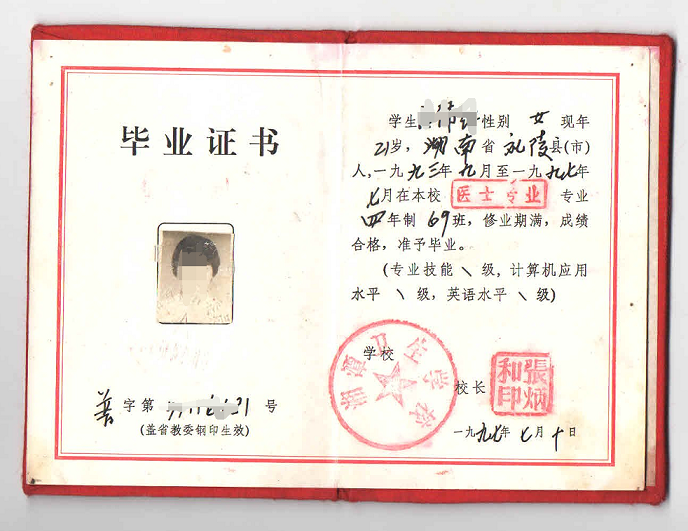 毕业证书
普字第 31 号
(盖省教委钢印生效)
学生 性别 女 现年
21岁，湖南省 醴陵县(市)
人,一九九三年九月至一九九七年
七月在本校 医士专业 专业
四年制 69班，修业期满，成绩
合格，准予毕业。
(专业技能 \ 级, 计算机应用
水平 \ 级，英语水平 \ 级)
学校
湘潭卫生学校
校长
張炳和印
一九九七年 七月十日